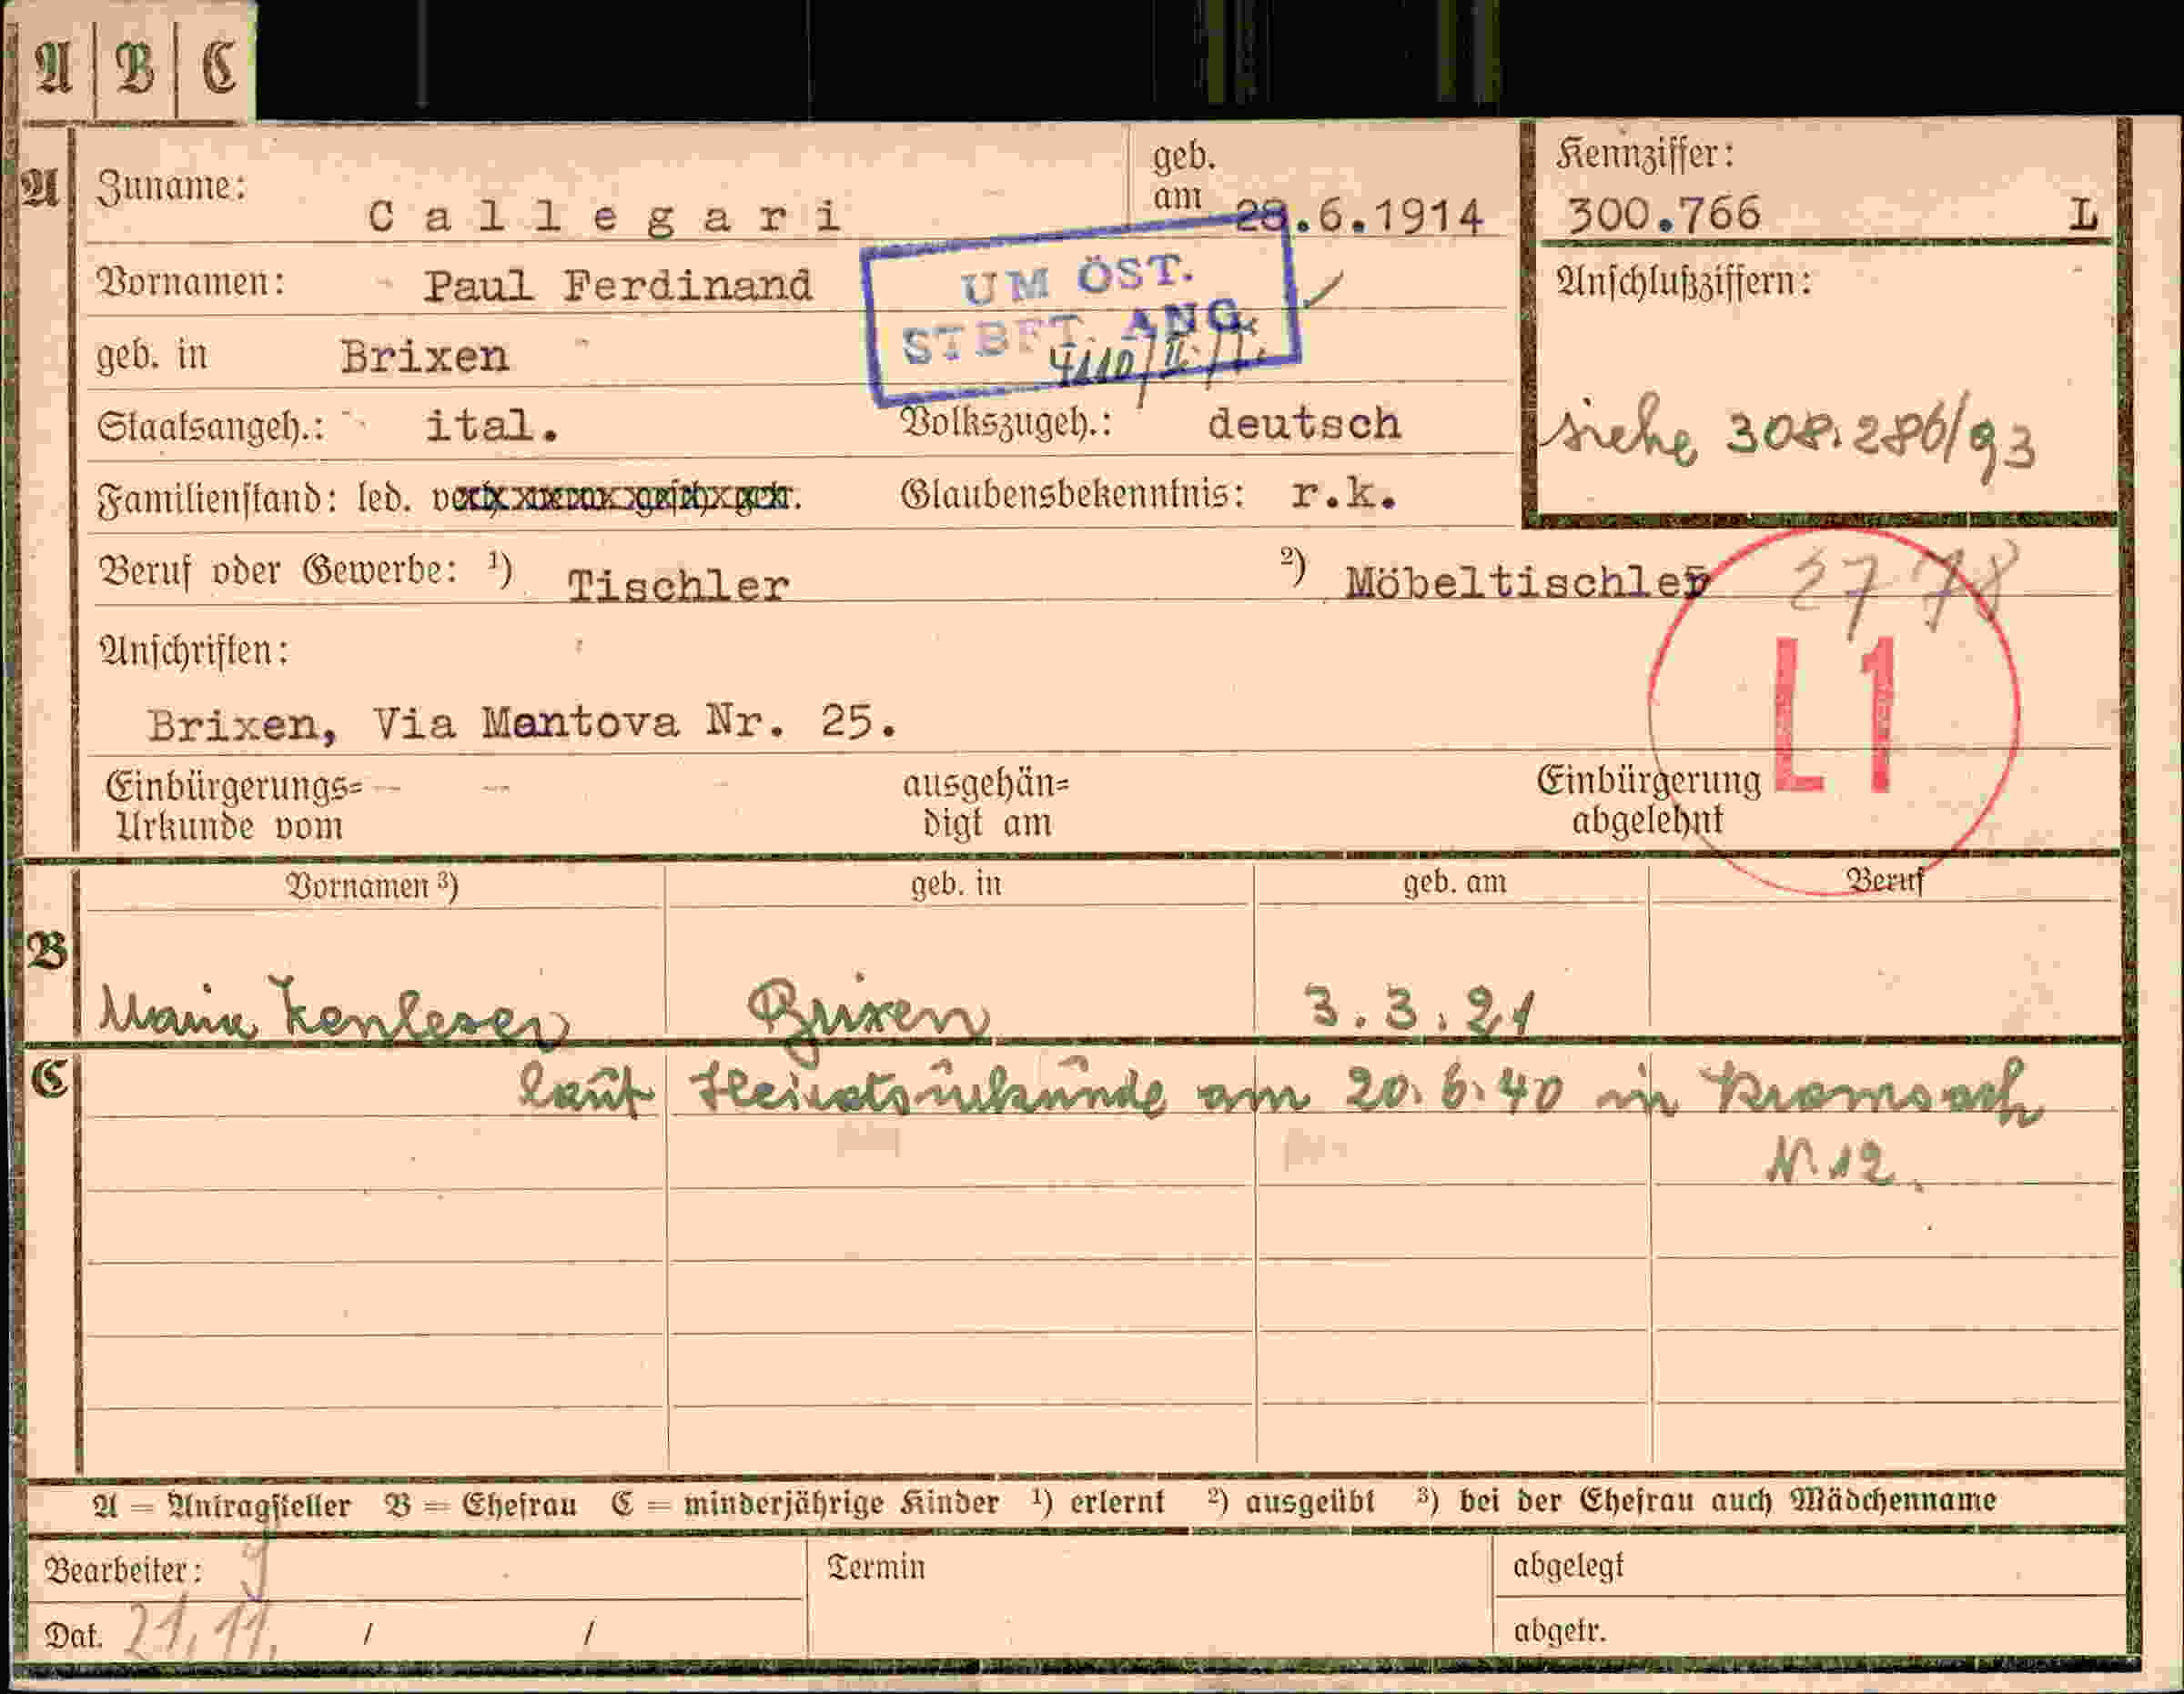 A B C
A
Zuname: Callegari
geb. am 28.6.1914
Kennziffer:
300.766 L
Vornamen: Paul Ferdinand
UM ÖST.
STBFT. ANG.
4110/II
Anschlußziffern:
geb. in Brixen
Staatsangeh.: ital. Volkszugeh.: deutsch
siehe 308.286/93
Familienstand: led. Glaubensbekenntnis: r.k.
Beruf oder Gewerbe: 1) Tischler 2) Möbeltischler
27 78
L1
Anschriften:
Brixen, Via Mantova Nr. 25.
Einbürgerungs=
Urkunde vom
ausgehän=
digt am
Einbürgerung
abgelehnt
B
Vornamen 3) geb. in geb. am Beruf
Maria Brixen 3.3.21
C
laut Heiratsurkunde am 20.6.40 in Kramsach
N. 12.
A = Antragsteller B = Ehefrau C = minderjährige Kinder 1) erlernt 2) ausgeübt 3) bei der Ehefrau auch Mädchenname
Bearbeiter: Termin abgelegt
Dat. 21.11. / / abgetr.